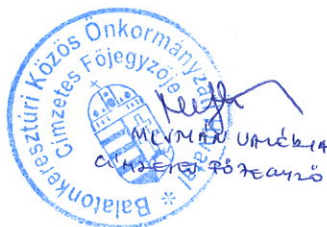 Balatonkeresztúri Közös Önkormányzati Hivatal
Címzetes Főjegyzője
MLIMÁN VALÉRIA
CÍMZETES FŐJEGYZŐ